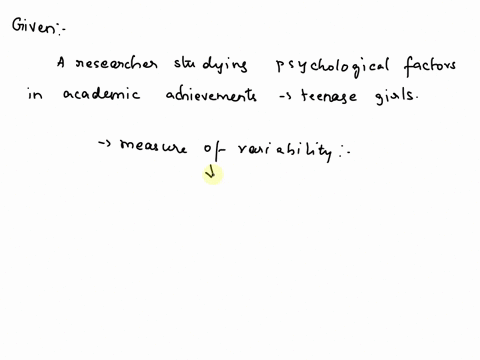 Given:-
A researcher studying psychological factors
in academic achievements → teenase girls.
→ measure of variability:-